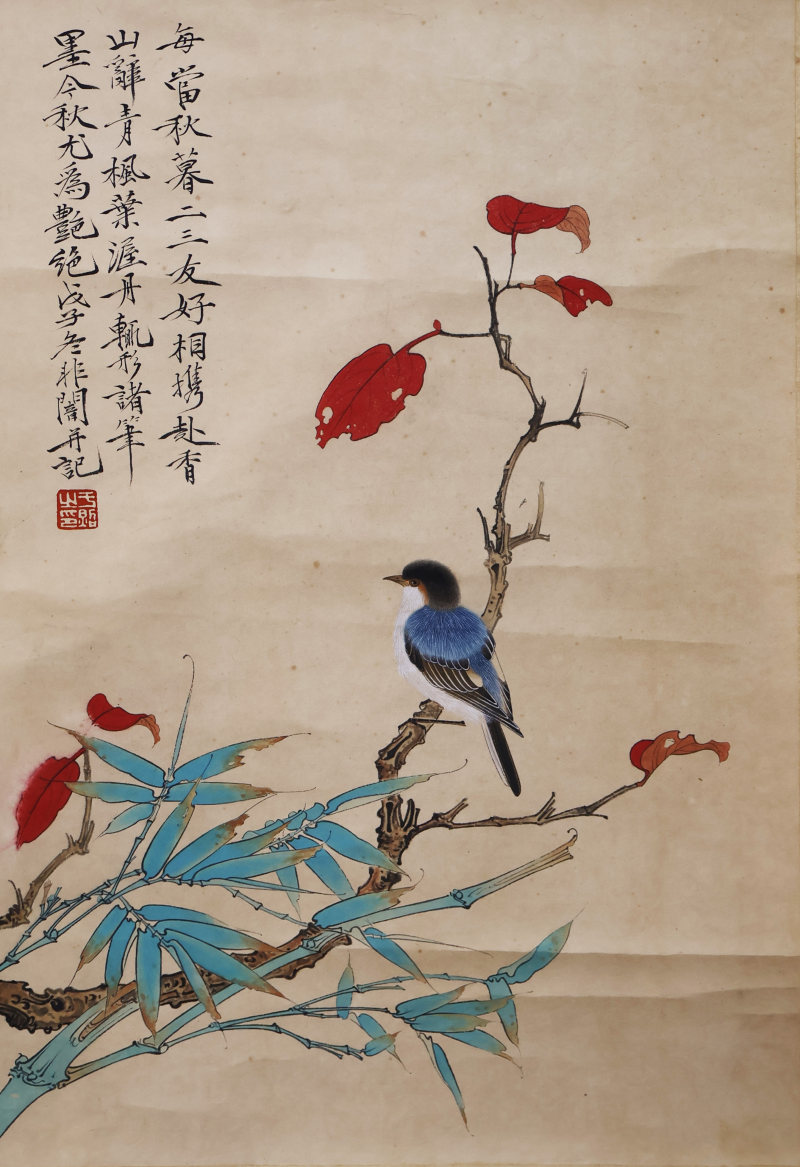 每當秋暮二三友好相携赴香
山辭青楓葉渥丹輒形諸筆
墨今秋尤為艷絕戊子冬非闇并記
于照之印